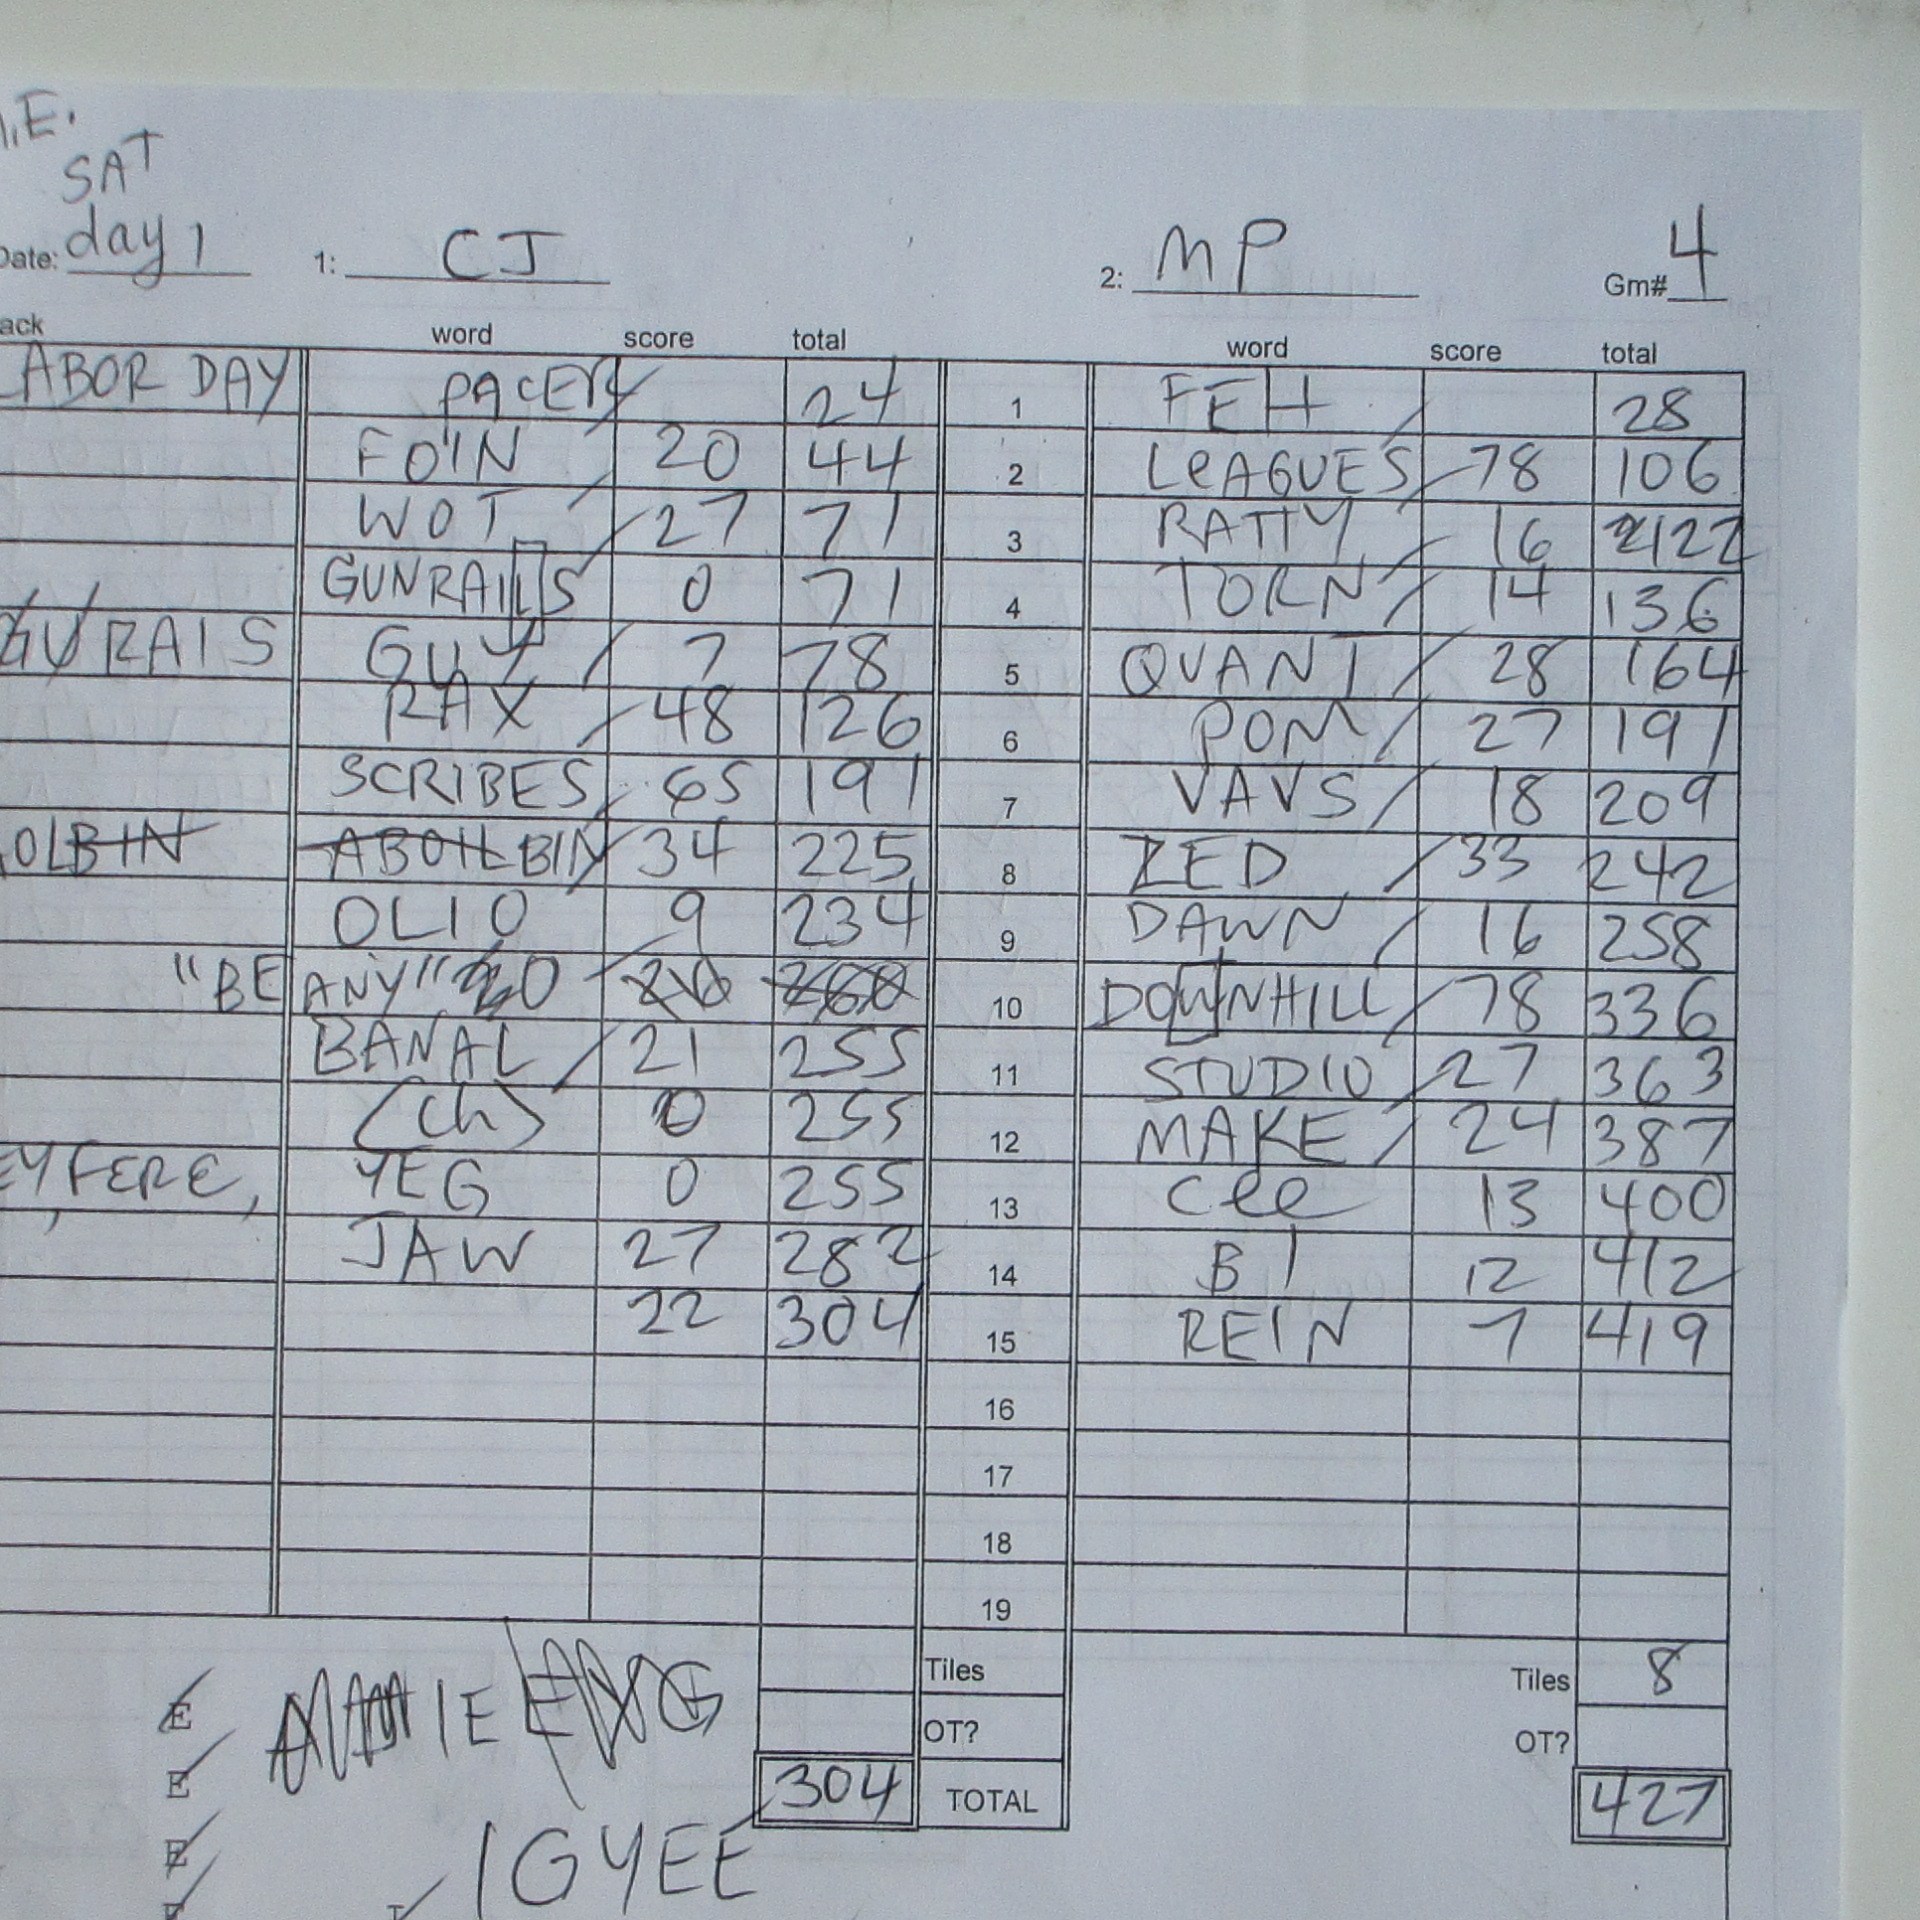 .E.
SAT
Date: day 1 1: CJ 2: MP Gm# 4
ack word score total word score total
LABOR DAY PACER 24 1 FEH 28
FOIN 20 44 2 LEAGUES 78 106
WOT 27 71 3 RATTY 16 122
GUNRAILS 0 71 4 TORN 14 136
GURAIS GUY 7 78 5 QUANT 28 164
RAX 48 126 6 POM 27 191
SCRIBES 65 191 7 VAVS 18 209
OLBIN ABOIL BIN 34 225 8 ZED 33 242
OLIO 9 234 9 DAWN 16 258
"BE ANY" 20 26 260 10 DOWNHILL 78 336
BANAL 21 255 11 STUDIO 27 363
(Ch) 0 255 12 MAKE 24 387
EY, FERE, YEG 0 255 13 Cee 13 400
JAW 27 282 14 BI 12 412
22 304 15 REIN 7 419
16
17
18
19
Tiles Tiles 8
OT? OT?
304 TOTAL 427
E
E
E
E
IGYEE